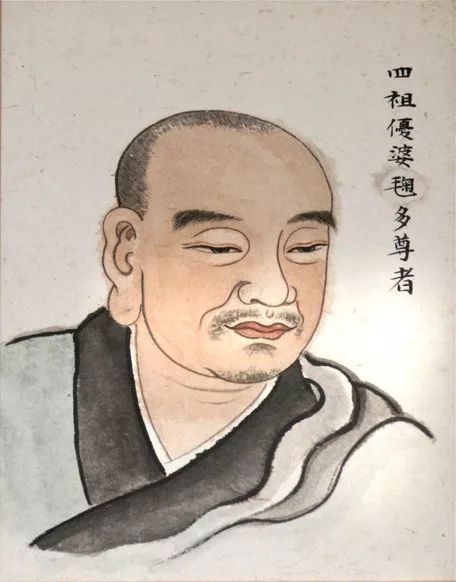 四祖優婆毱多尊者